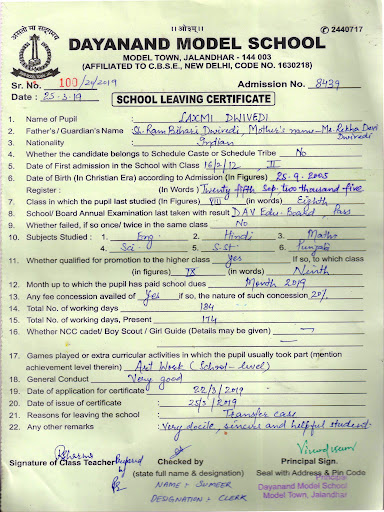 ।। ओ३म् ।।
✆ 2440717
DAYANAND MODEL SCHOOL
MODEL TOWN, JALANDHAR - 144 003
(AFFILIATED TO C.B.S.E., NEW DELHI, CODE NO. 1630218)
Sr. No. 100/24/2019 Admission No. 8439
Date : 25-3-19
SCHOOL LEAVING CERTIFICATE
1. Name of Pupil : LAXMI DWIVEDI
2. Father's / Guardian's Name : Sh. Ram Bihari Dwivedi, Mother's name - Ms. Rekha Devi Dwivedi
3. Nationality : Indian
4. Whether the candidate belongs to Schedule Caste or Schedule Tribe : No
5. Date of First admission in the School with Class 16/2/12, II
6. Date of Birth (In Christian Era) according to Admission (In Figures) 25.9.2005
Register : (In Words) Twenty fifth Sep. two thousand five
7. Class in which the pupil last studied (In Figures) VIII (in words) Eighth
8. School/ Board Annual Examination last taken with result DAV Edu. Board, Pass
9. Whether failed, if so once/ twice in the same class No
10. Subjects Studied : 1. Eng 2. Hindi 3. Maths
4. Sci 5. S.St. 6. Punjabi
11. Whether qualified for promotion to the higher class Yes If so, to which class
(in figures) IX (in words) Ninth
12. Month up to which the pupil has paid school dues March 2019
13. Any fee concession availed of Yes if so, the nature of such concession 20%
14. Total No. of working days 184
15. Total No. of working days, Present 174
16. Whether NCC cadet/ Boy Scout / Girl Guide (Details may be given) —
17. Games played or extra curricular activities in which the pupil usually took part (mention
achievement level therein) Art Work (School-level)
18. General Conduct Very good
19. Date of application for certificate : 22/3/2019
20. Date of issue of certificate : 25/3/2019
21. Reasons for leaving the school : Transfer case
22. Any other remarks : Very docile, sincere and helpful student.
Prepared by
Signature of Class Teacher Checked by Principal Sign.
(state full name & designation) Seal with Address & Pin Code
NAME :- SUMEER
DESIGNATION :- CLERK
Principal
Dayanand Model School
Model Town, Jalandhar